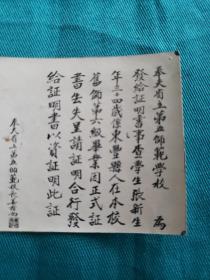 奉天省立第五師範學校 為
發給証明書事查學生張新生
年三十四歲係東豐縣人在本校
舊師第六級畢業因正式証
書去失呈請証明合行發
給証明書以資証明此証
奉天省立第五師範校長姜